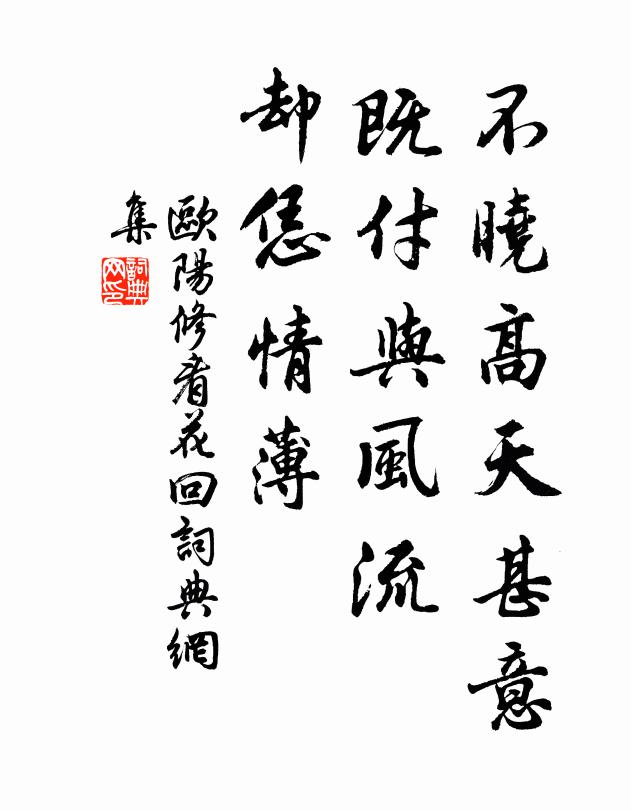 不曉高天甚意
既付與風流
却恁情薄
歐陽修看花回詞典網
集
詞典
网印